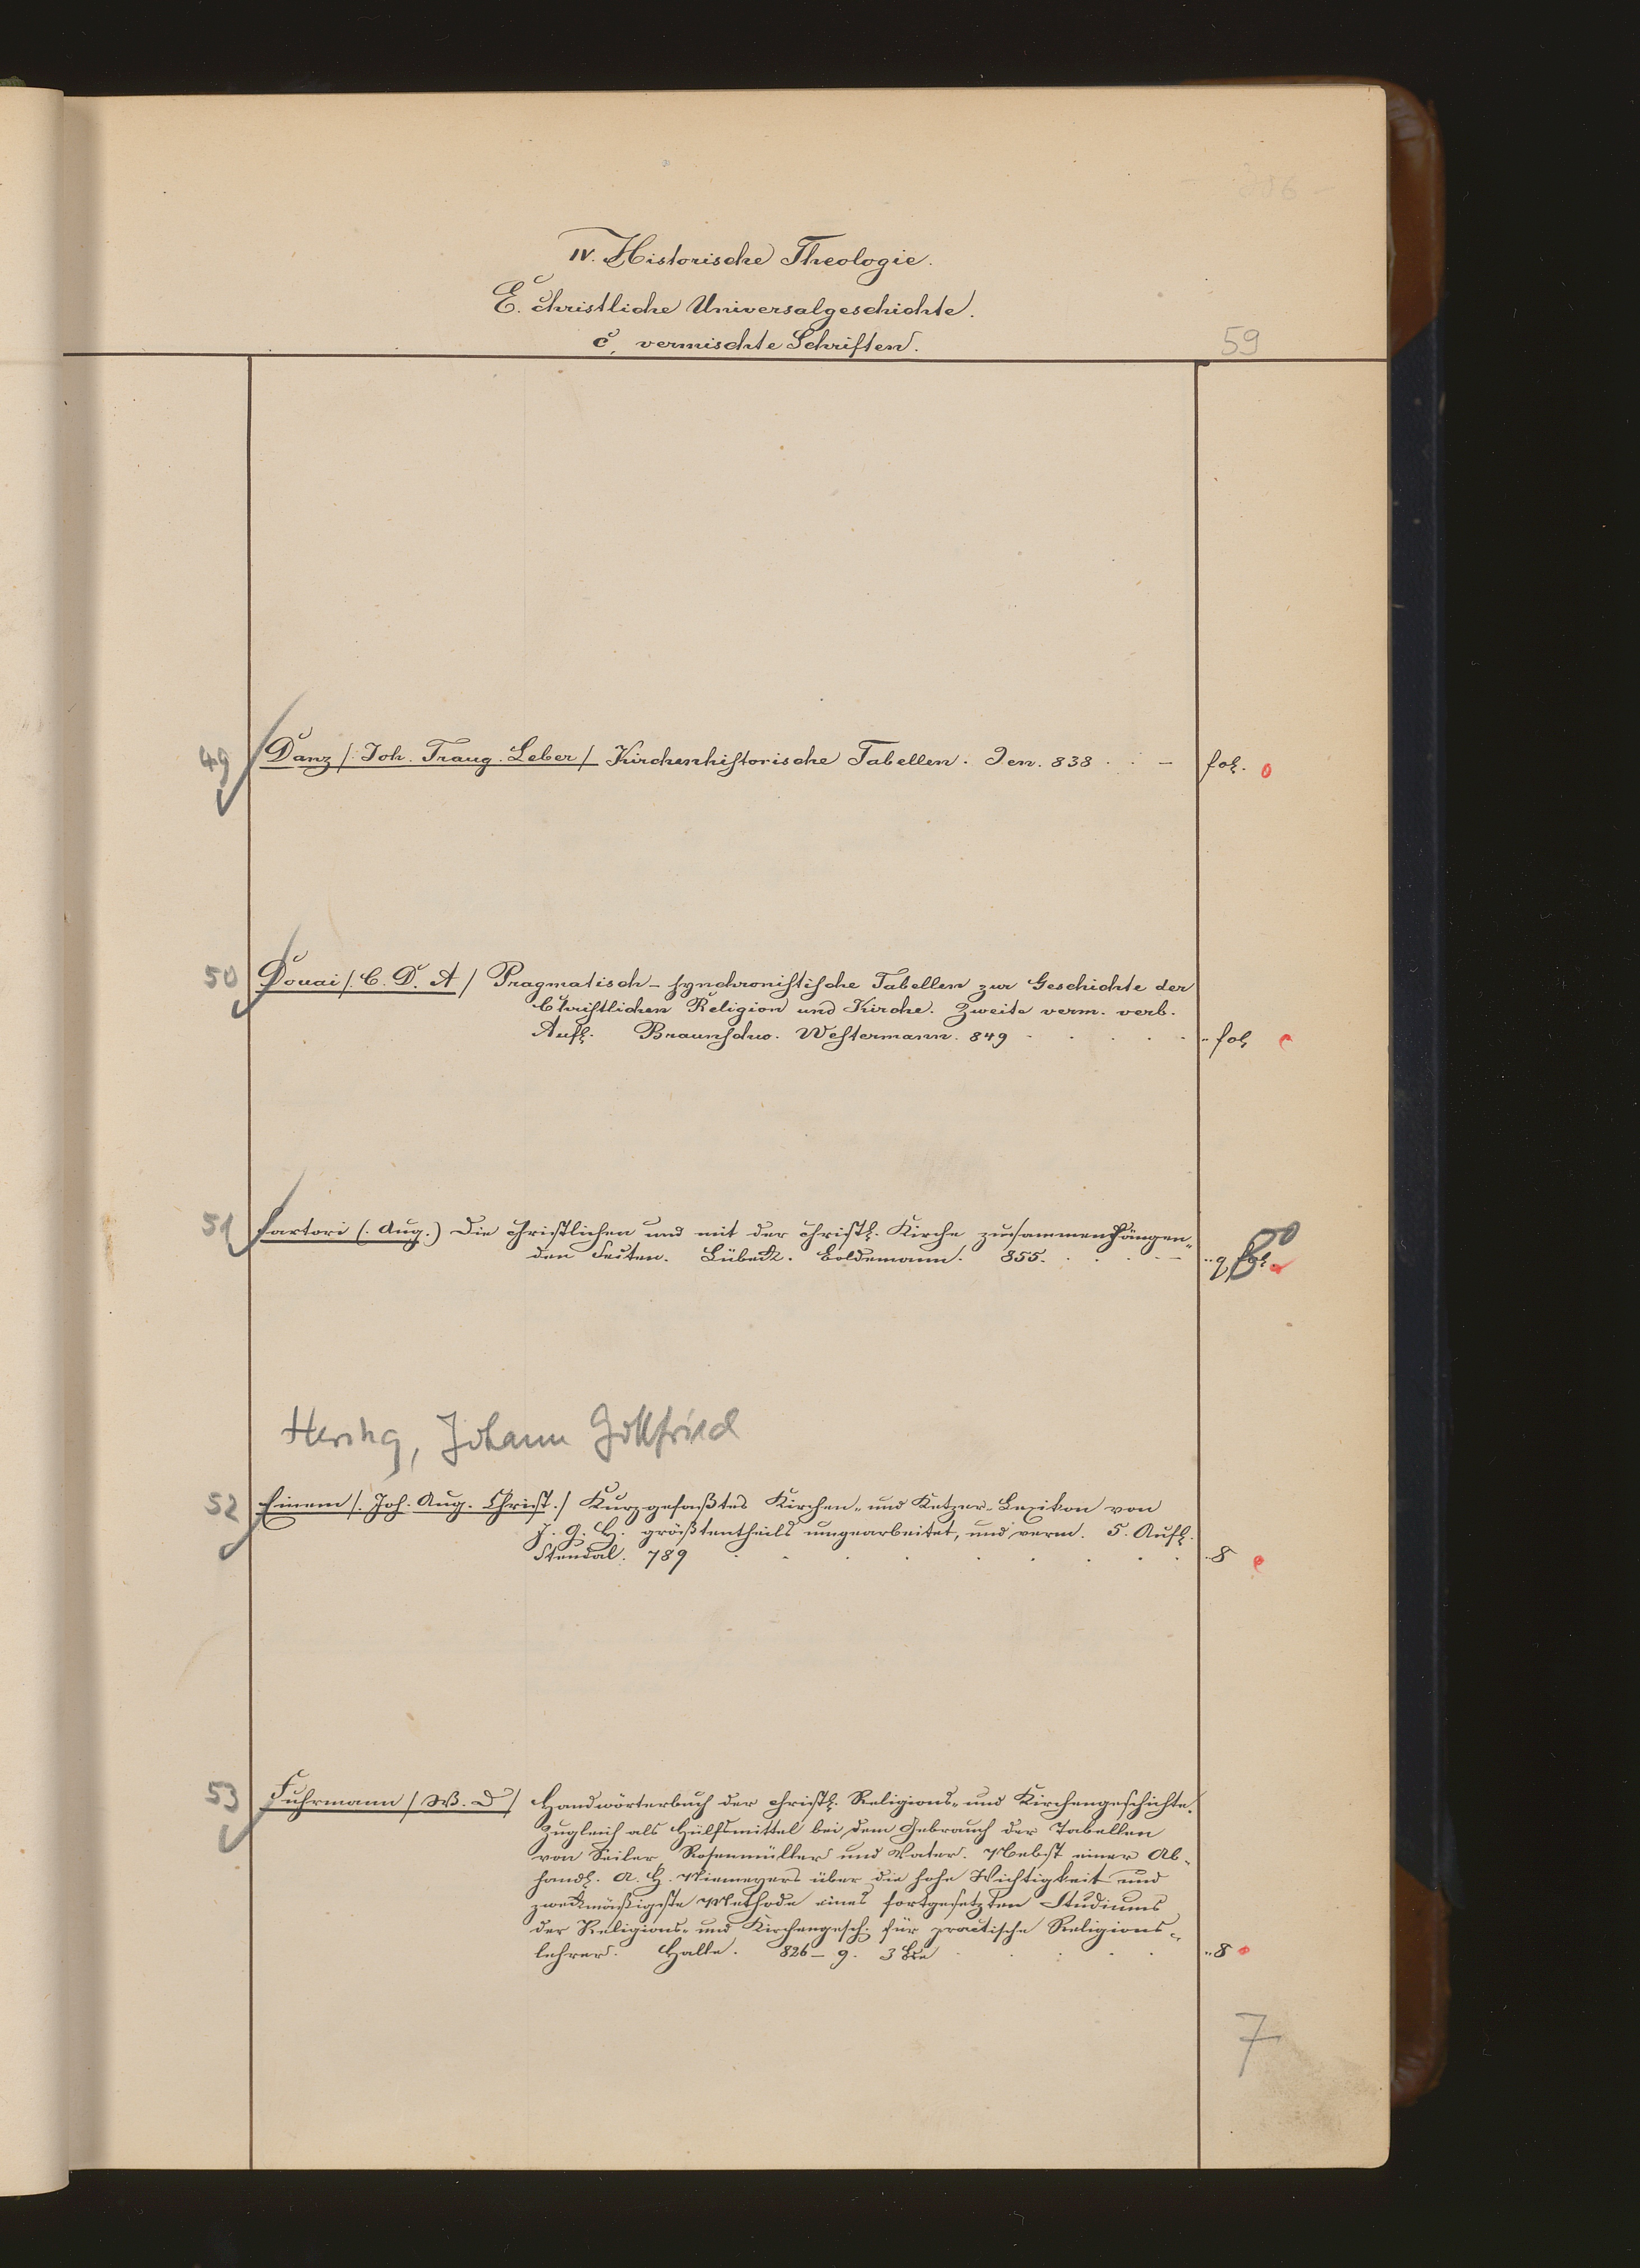 IV. Historische Theologie.
E. Christliche Universalgeschichte.
c, vermischte Schriften.
59
49 Danz /: Joh. Traug. Leber / Kirchenhistorische Tabellen. Jen. 838 fol.
50 Douai /. C. D. A / Pragmatisch-synchronistische Tabellen zur Geschichte der
Christlichen Religion und Kirche. Zweite verm. verb.
Aufl. Braunschw. Westermann. 849 fol
51 Sartori (. Aug.) Die christlichen und mit der christl. Kirche zusammenhängen-
den Secten. Lübeck. Boldemann. 855. q fol. 8°
Hering, Johann Gottfried
52 Einem /. Joh. Aug. Christ. / Kurzgefaßtes Kirchen- und Ketzer-Lexikon von
J. G. H. größtentheils umgearbeitet, und verm. 5. Aufl.
Stendal. 789 8
53 Fuhrmann / W. D / Handwörterbuch der christl. Religions- und Kirchengeschichte.
Zugleich als Hülfsmittel bei dem Gebrauch der Tabellen
von Seiler Rosenmüller und Vater. Nebst einer Ab-
handl. A. H. Niemeyers über die hohe Wichtigkeit und
zweckmäßigste Methode eines fortgesetzten Studiums
der Religions- und Kirchengesch. für practische Religions-
lehrer. Halle. 826-9. 3 Bde 8
7